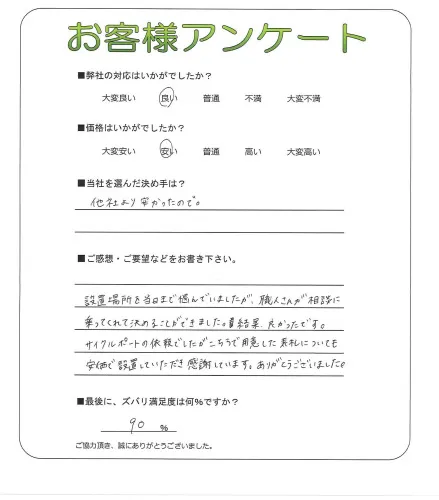 お客様アンケート
■弊社の対応はいかがでしたか？
大変良い 良い 普通 不満 大変不満
■価格はいかがでしたか？
大変安い 安い 普通 高い 大変高い
■当社を選んだ決め手は？
他社より安かったので。
■ご感想・ご要望などをお書き下さい。
設置場所を当日まで悩んでいましたが、職人さんが相談に
乗ってくれて決めることができました。結果、良かったです。
サイクルポートの依頼でしたがこちらで用意した表札についても
安価で設置していただき感謝しています。ありがとうございました。
■最後に、ズバリ満足度は何%ですか？
90 %
ご協力頂き、誠にありがとうございました。